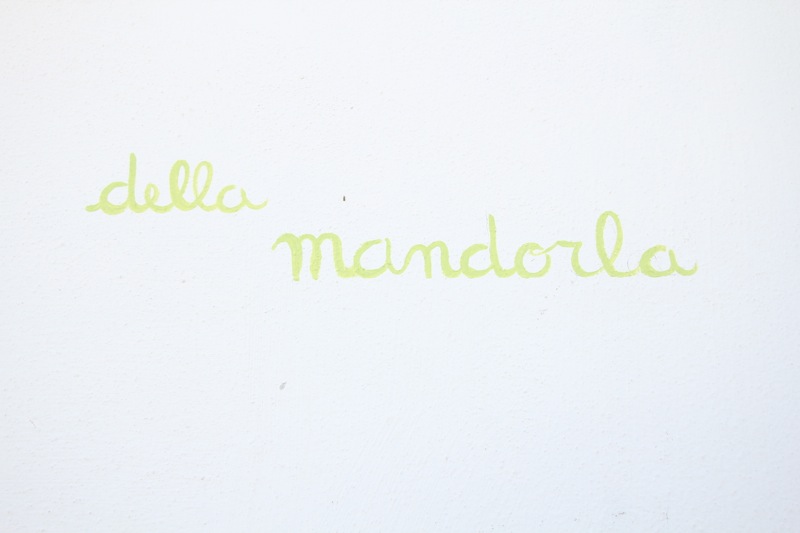 della
mandorla